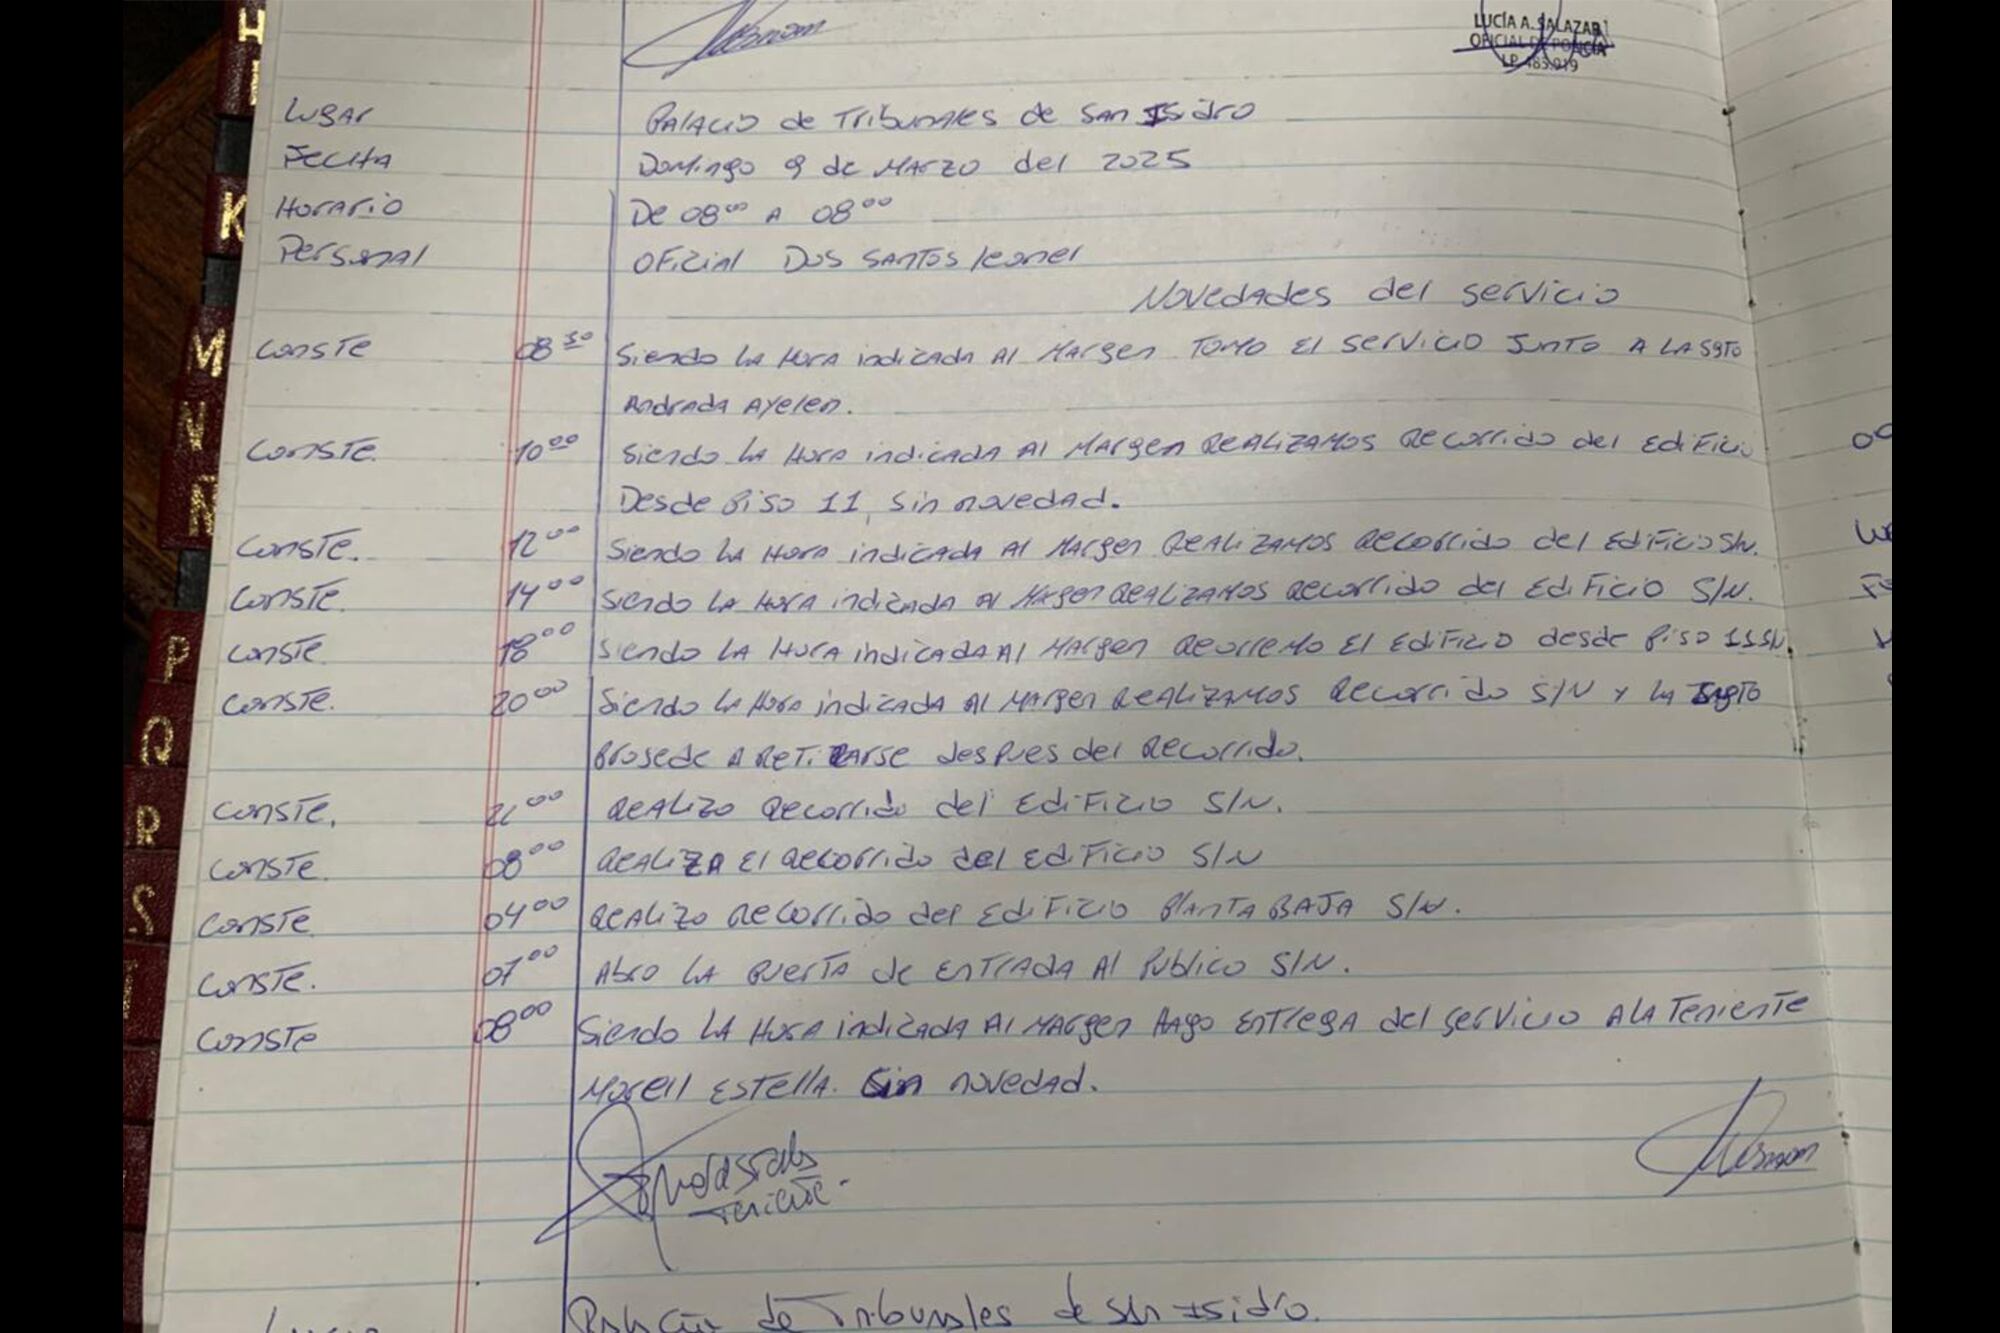 LUCÍA A. SALAZAR
OFICIAL DE POLICÍA
LP. 483.919
Lugar Palacio de Tribunales de San Isidro
Fecha Domingo 9 de Marzo del 2025
Horario De 08⁰⁰ A 08⁰⁰
Personal Oficial Dos Santos Leonel
Novedades del servicio
Conste 08³⁰ Siendo la hora indicada al margen tomo el servicio junto a la Sgto
Andrada Ayelen.
Conste. 10⁰⁰ Siendo la hora indicada al margen realizamos recorrido del edificio
Desde piso 11, sin novedad.
Conste. 12⁰⁰ Siendo la hora indicada al margen realizamos recorrido del edificio S/N.
Conste. 14⁰⁰ Siendo la hora indicada al margen realizamos recorrido del edificio S/N.
Conste 18⁰⁰ Siendo la hora indicada al margen recorremo el edificio desde piso 11 S/N.
Conste. 20⁰⁰ Siendo la hora indicada al margen realizamos recorrido S/N y la Sgto
prosede a retirarse despues del recorrido.
Conste. ⁰⁰ Realizo recorrido del edificio S/N.
Conste. 08⁰⁰ Realiza el recorrido del edificio S/N
Conste. 04⁰⁰ Realizo recorrido del edificio planta baja S/N.
Conste. 07⁰⁰ Abro la puerta de entrada al publico S/N.
Conste 08⁰⁰ Siendo la hora indicada al margen hago entrega del servicio a la Teniente
Morell Estella. Sin novedad.
Teniente.
Palacio de Tribunales de San Isidro.
H
K
M
N
Ñ
P
Q
R
S